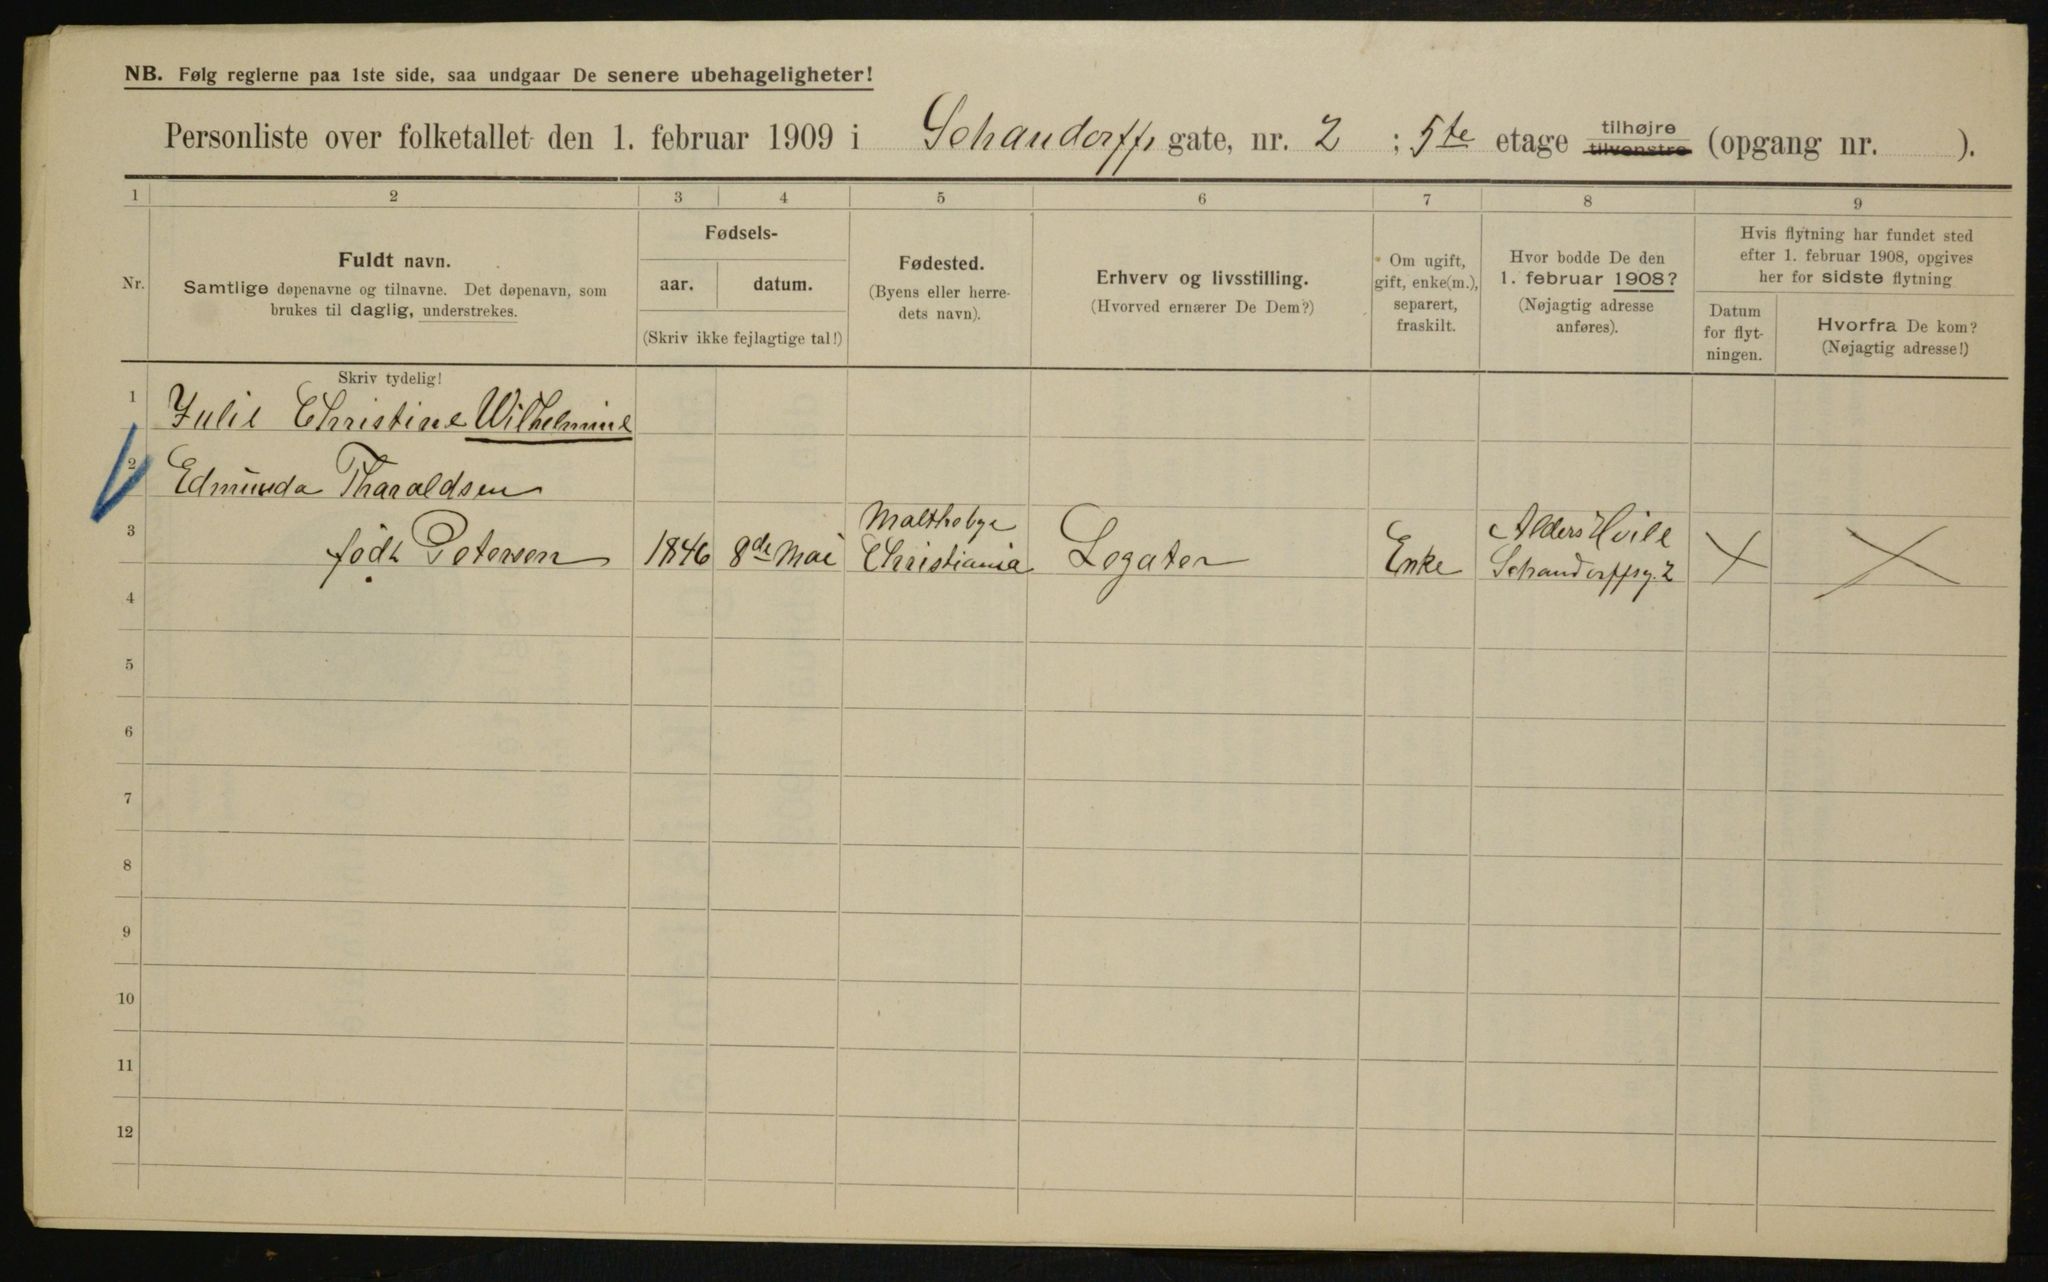 NB. Følg reglerne paa 1ste side, saa undgaar De senere ubehageligheter!
Personliste over folketallet den 1. februar 1909 i Schandorffs gate, nr. 2 ; 5te etage tilhøjre tilvenstre (opgang nr. ).
1 2 3 4 5 6 7 8 9
Nr.
Fuldt navn.
Samtlige døpenavne og tilnavne. Det døpenavn, som
brukes til daglig, understrekes.
Fødsels-
aar. datum.
(Skriv ikke fejlagtige tal!)
Fødested.
(Byens eller herre-
dets navn).
Erhverv og livsstilling.
(Hvorved ernærer De Dem?)
Om ugift,
gift, enke(m.),
separert,
fraskilt.
Hvor bodde De den
1. februar 1908?
(Nøjagtig adresse
anføres).
Hvis flytning har fundet sted
efter 1. februar 1908, opgives
her for sidste flytning
Datum
for flyt-
ningen.
Hvorfra De kom?
(Nøjagtig adresse!)
Skriv tydelig!
1 Julie Christine Wilhelmine
2 Edmunda Tharaldsen
Malthebye Alders Hvile
3 født Petersen 1846 8de Mai Christiania Legater Enke Schandorffsg. 2 X X
4
5
6
7
8
9
10
11
12